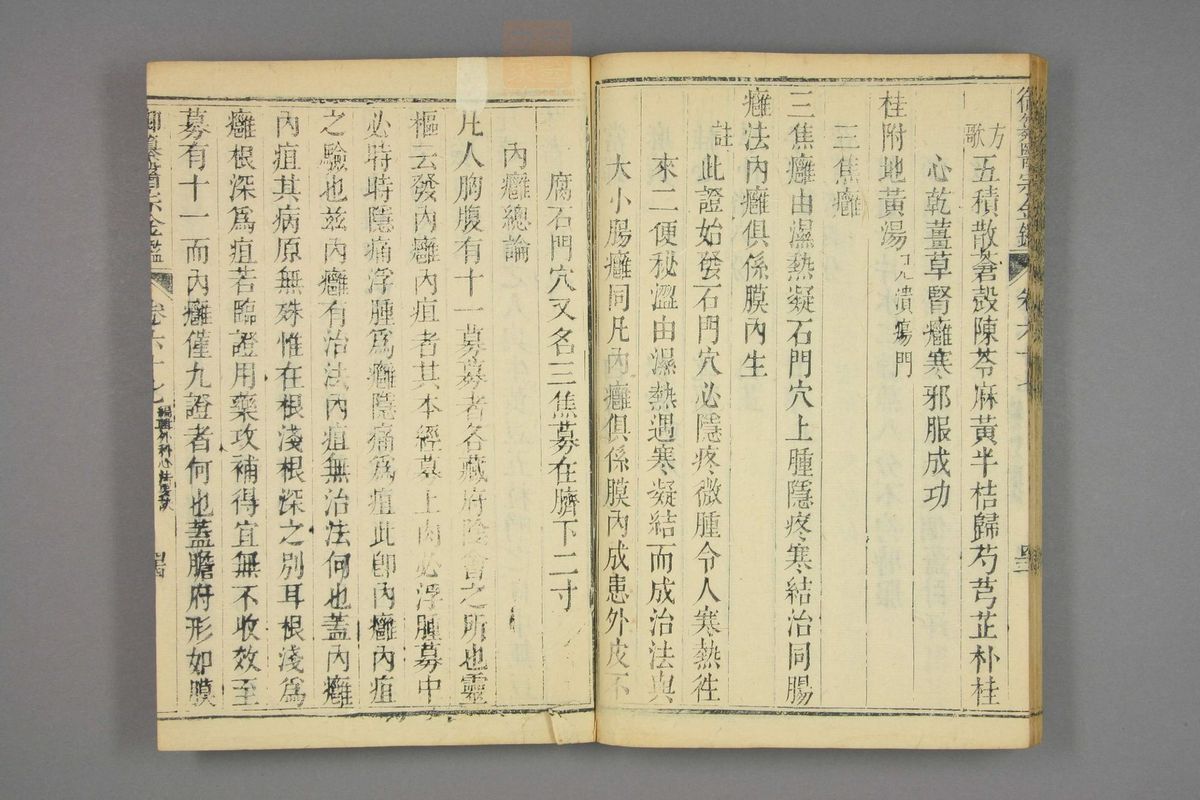 御纂醫宗金鑑 卷六十七
方歌 五積散蒼殼陳苓麻黃半桔歸芍芎芷朴桂
心乾薑草腎癰寒邪服成功
桂附地黃湯 見潰瘍門
三焦癰
三焦癰由濕熱凝石門穴上腫隱疼寒結治同腸
癰法內癰俱係膜內生
註 此證始發石門穴必隱疼微腫令人寒熱徃
來二便秘澀由濕熱遇寒凝結而成治法與
大小腸癰同凡內癰俱係膜內成患外皮不
腐石門穴又名三焦募在臍下二寸
內癰總論
凡人胸腹有十一募募者各藏府陰會之所也靈
樞云發內癰內疽者其本經募上肉必浮腫募中
必時時隱痛浮腫爲癰隱痛爲疽此卽內癰內疽
之驗也茲內癰有治法內疽無治法何也蓋內癰
內疽其病原無殊惟在根淺根深之別耳根淺爲
癰根深爲疽若臨證用藥攻補得宜無不收效至
募有十一而內癰僅九證者何也蓋膽府形如膜
御纂醫宗金鑑 卷六十七 編輯外科心法要訣